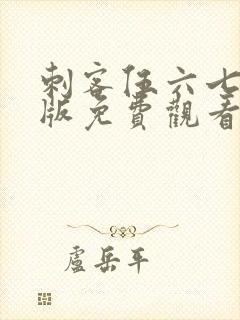 刺客伍六七
版免費觀看
盧岳平